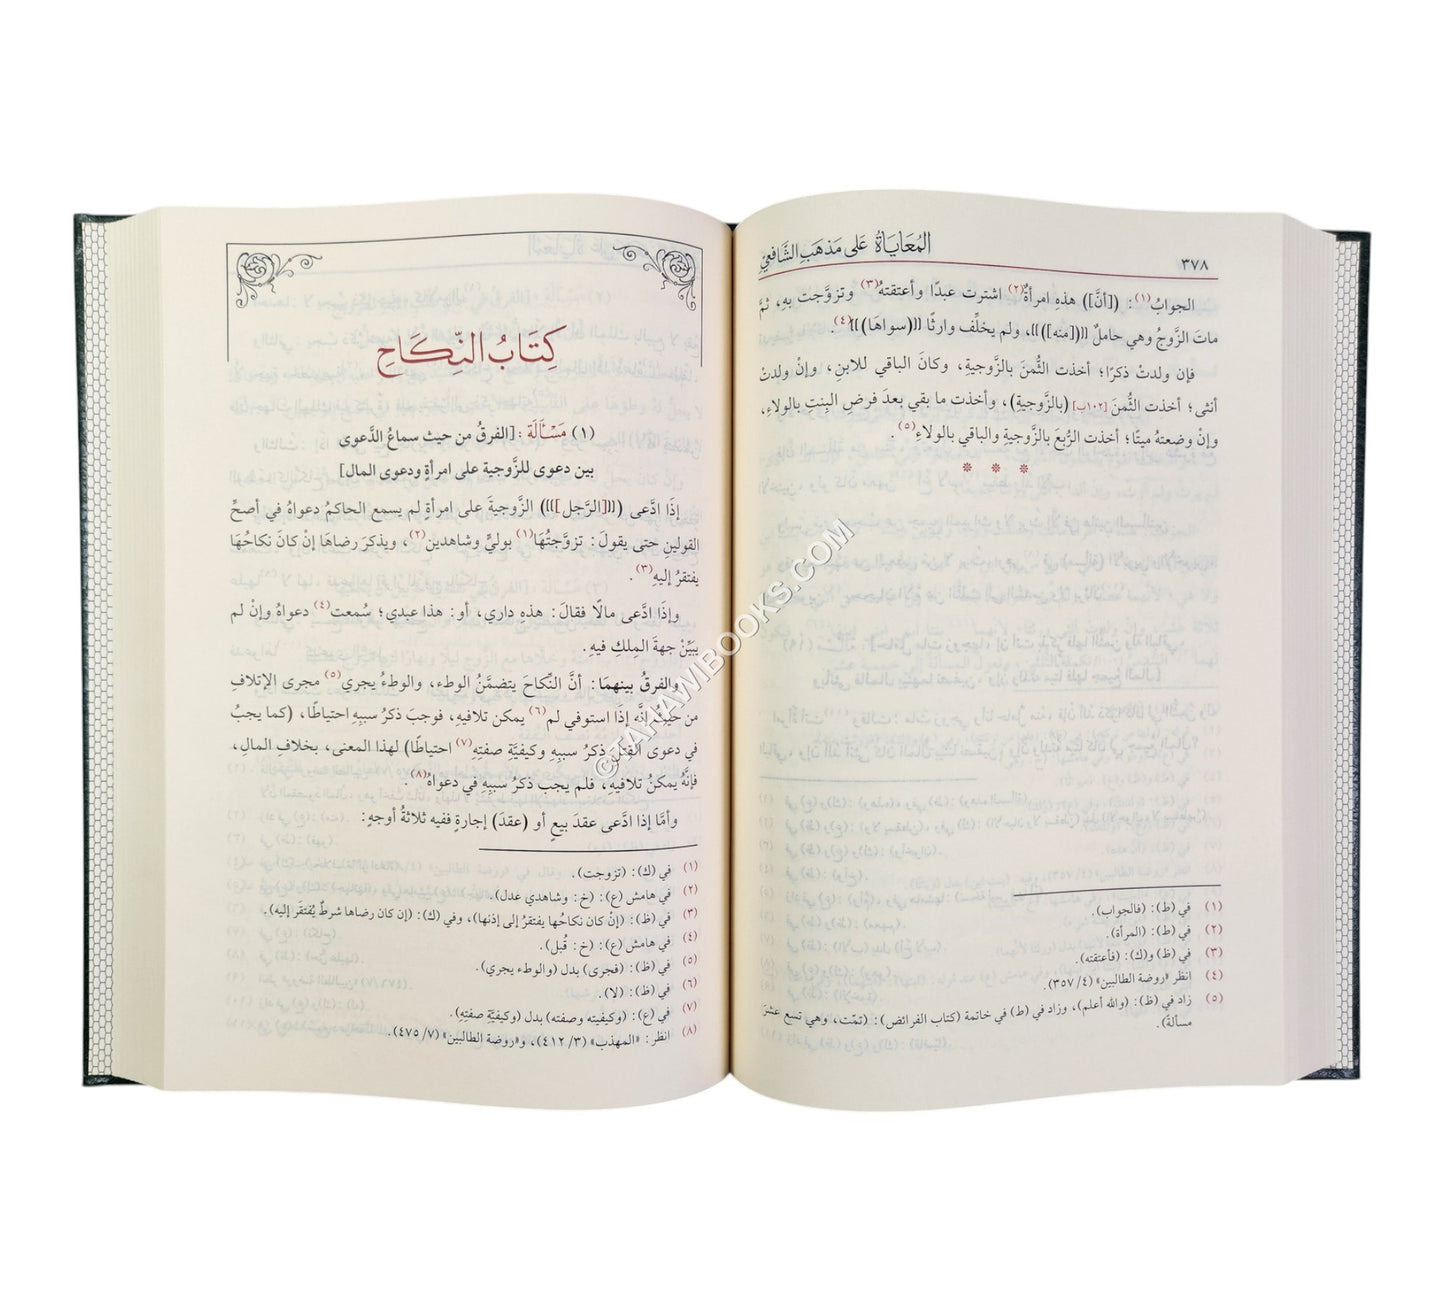 ٣٧٨
المُعَايَاةُ عَلى مَذهَبِ الشَّافعيِّ
الجوابُ(١): ([أنَّ]) هذهِ امرأةٌ(٢) اشترت عبدًا وأعتقتهُ(٣) وتزوَّجت بهِ، ثمَّ
ماتَ الزَّوجُ وهي حاملٌ (([منه])))، ولم يخلِّف وارثًا (((سواهَا)))(٤).
فإن ولدتْ ذكرًا؛ أخذت الثُّمنَ بالزَّوجيةِ، وكانَ الباقي للابنِ، وإنْ ولدتْ
أنثى؛ أخذت الثُّمنَ [١٠٢ب] (بالزَّوجيةِ)، وأخذت ما بقي بعدَ فرضِ البِنتِ بالولاءِ،
وإنْ وضعتهُ ميتًا؛ أخذت الرُّبعَ بالزَّوجيةِ والباقي بالولاءِ(٥).
(١) في (ط): (فالجواب).
(٢) في (ط): (المرأة).
(٣) في (ظ) و(ك): (فأعتقته).
(٤) انظر «روضة الطالبين» (٤/ ٣٥٧).
(٥) زاد في (ظ): (والله أعلم)، وزاد في (ط) في خاتمة (كتاب الفرائض): (تمّت، وهي تسع عشرَ
مسألة).
كِتَابُ النِّكَاحِ
(١) مَسْأَلَة: [الفرقُ من حيث سماعُ الدَّعوى
بين دعوى للزَّوجية على امرأةٍ ودعوى المال]
إذَا ادَّعى (((الرَّجل]))) الزَّوجيةَ على امرأةٍ لم يسمع الحاكمُ دعواهُ في أصحِّ
القولينِ حتى يقولَ: تزوَّجتُهَا(١) بوليٍّ وشاهدين(٢)، ويذكرَ رضاهَا إنْ كانَ نكاحُهَا
يفتقرُ إليهِ(٣).
وإذَا ادَّعى مالًا فقالَ: هذهِ داري، أو: هذا عبدي؛ سُمعت(٤) دعواهُ وإنْ لم
يبيِّنْ جهةَ المِلكِ فيهِ.
والفرقُ بينهمَا: أنَّ النِّكاحَ يتضمَّنُ الوطء، والوطءُ يجري(٥) مجرى الإتلافِ
من حيثُ إنَّه إذَا استوفي لم(٦) يمكن تلافيهِ، فوجبَ ذكرُ سببهِ احتياطًا، (كما يجبُ
في دعوى القتلِ ذكرُ سببهِ وكيفيَّةِ صفتِهِ(٧) احتياطًا) لهذا المعنى، بخلافِ المالِ،
فإنَّهُ يمكنُ تلافيهِ، فلم يجب ذكرُ سببهِ في دعواهُ(٨)
وأمَّا إذا ادَّعى عقدَ بيعٍ أو (عقدَ) إجارةٍ ففيه ثلاثةُ أوجهٍ:
(١) في (ك): (تزوجت).
(٢) في هامش (ع): (خ: وشاهدي عدل).
(٣) في (ظ): (إنْ كان نكاحُها يفتقرُ إلى إذنها)، وفي (ك): (إن كان رضاها شرطٌ يُفتقَر إليه).
(٤) في هامش (ع): (خ: قُبل).
(٥) في (ظ): (فجرى) بدل (والوطء يجري).
(٦) في (ظ): (لا).
(٧) في (ع): (وكيفيته وصفته) بدل (وكيفيَّةِ صفتِهِ).
(٨) انظر: «المهذب» (٣/ ٤١٢)، و«روضة الطالبين» (٧/ ٤٧٥).
© TAHAWIBOOKS.COM